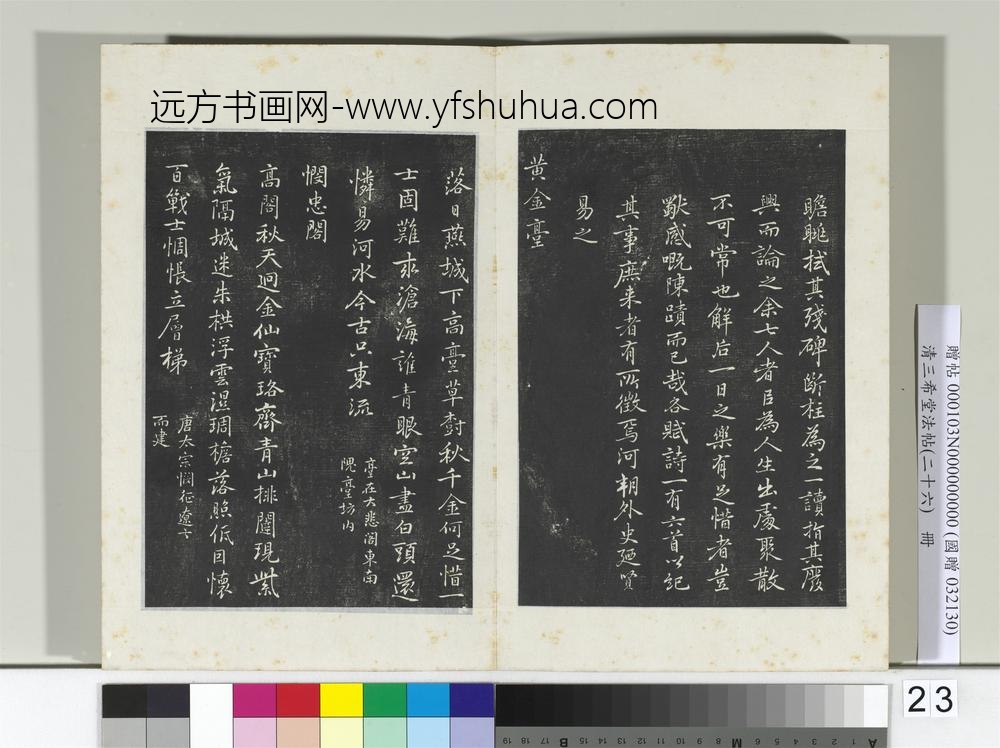 远方书画网-www.yfshuhua.com
瞻眺拭其殘碑斷柱為之一讀指其廢
興而論之余七人者臣為人生出處聚散
不可常也解后一日之樂有足惜者豈
歔感嘅陳蹟而已哉各賦詩一有六首以紀
其事庶来者有所徵焉河朔外史廼賢
易之
黄金臺
落日燕城下高臺草樹秋千金何足惜一
士固難求滄海誰青眼空山盡白頭還
憐易河水今古只東流
臺在大悲閣東南
隗臺坊内
憫忠閣
高閣秋天迥金仙寶珞齊青山排闥現紫
氣隔城迷朱栱浮雲濕琱檐落照低目懷
百戰士惆悵立層梯
唐太宗憫征遼士
而建
贈帖 000103N000000000 (國贈 032130)
清三希堂法帖(二十六) 冊
23